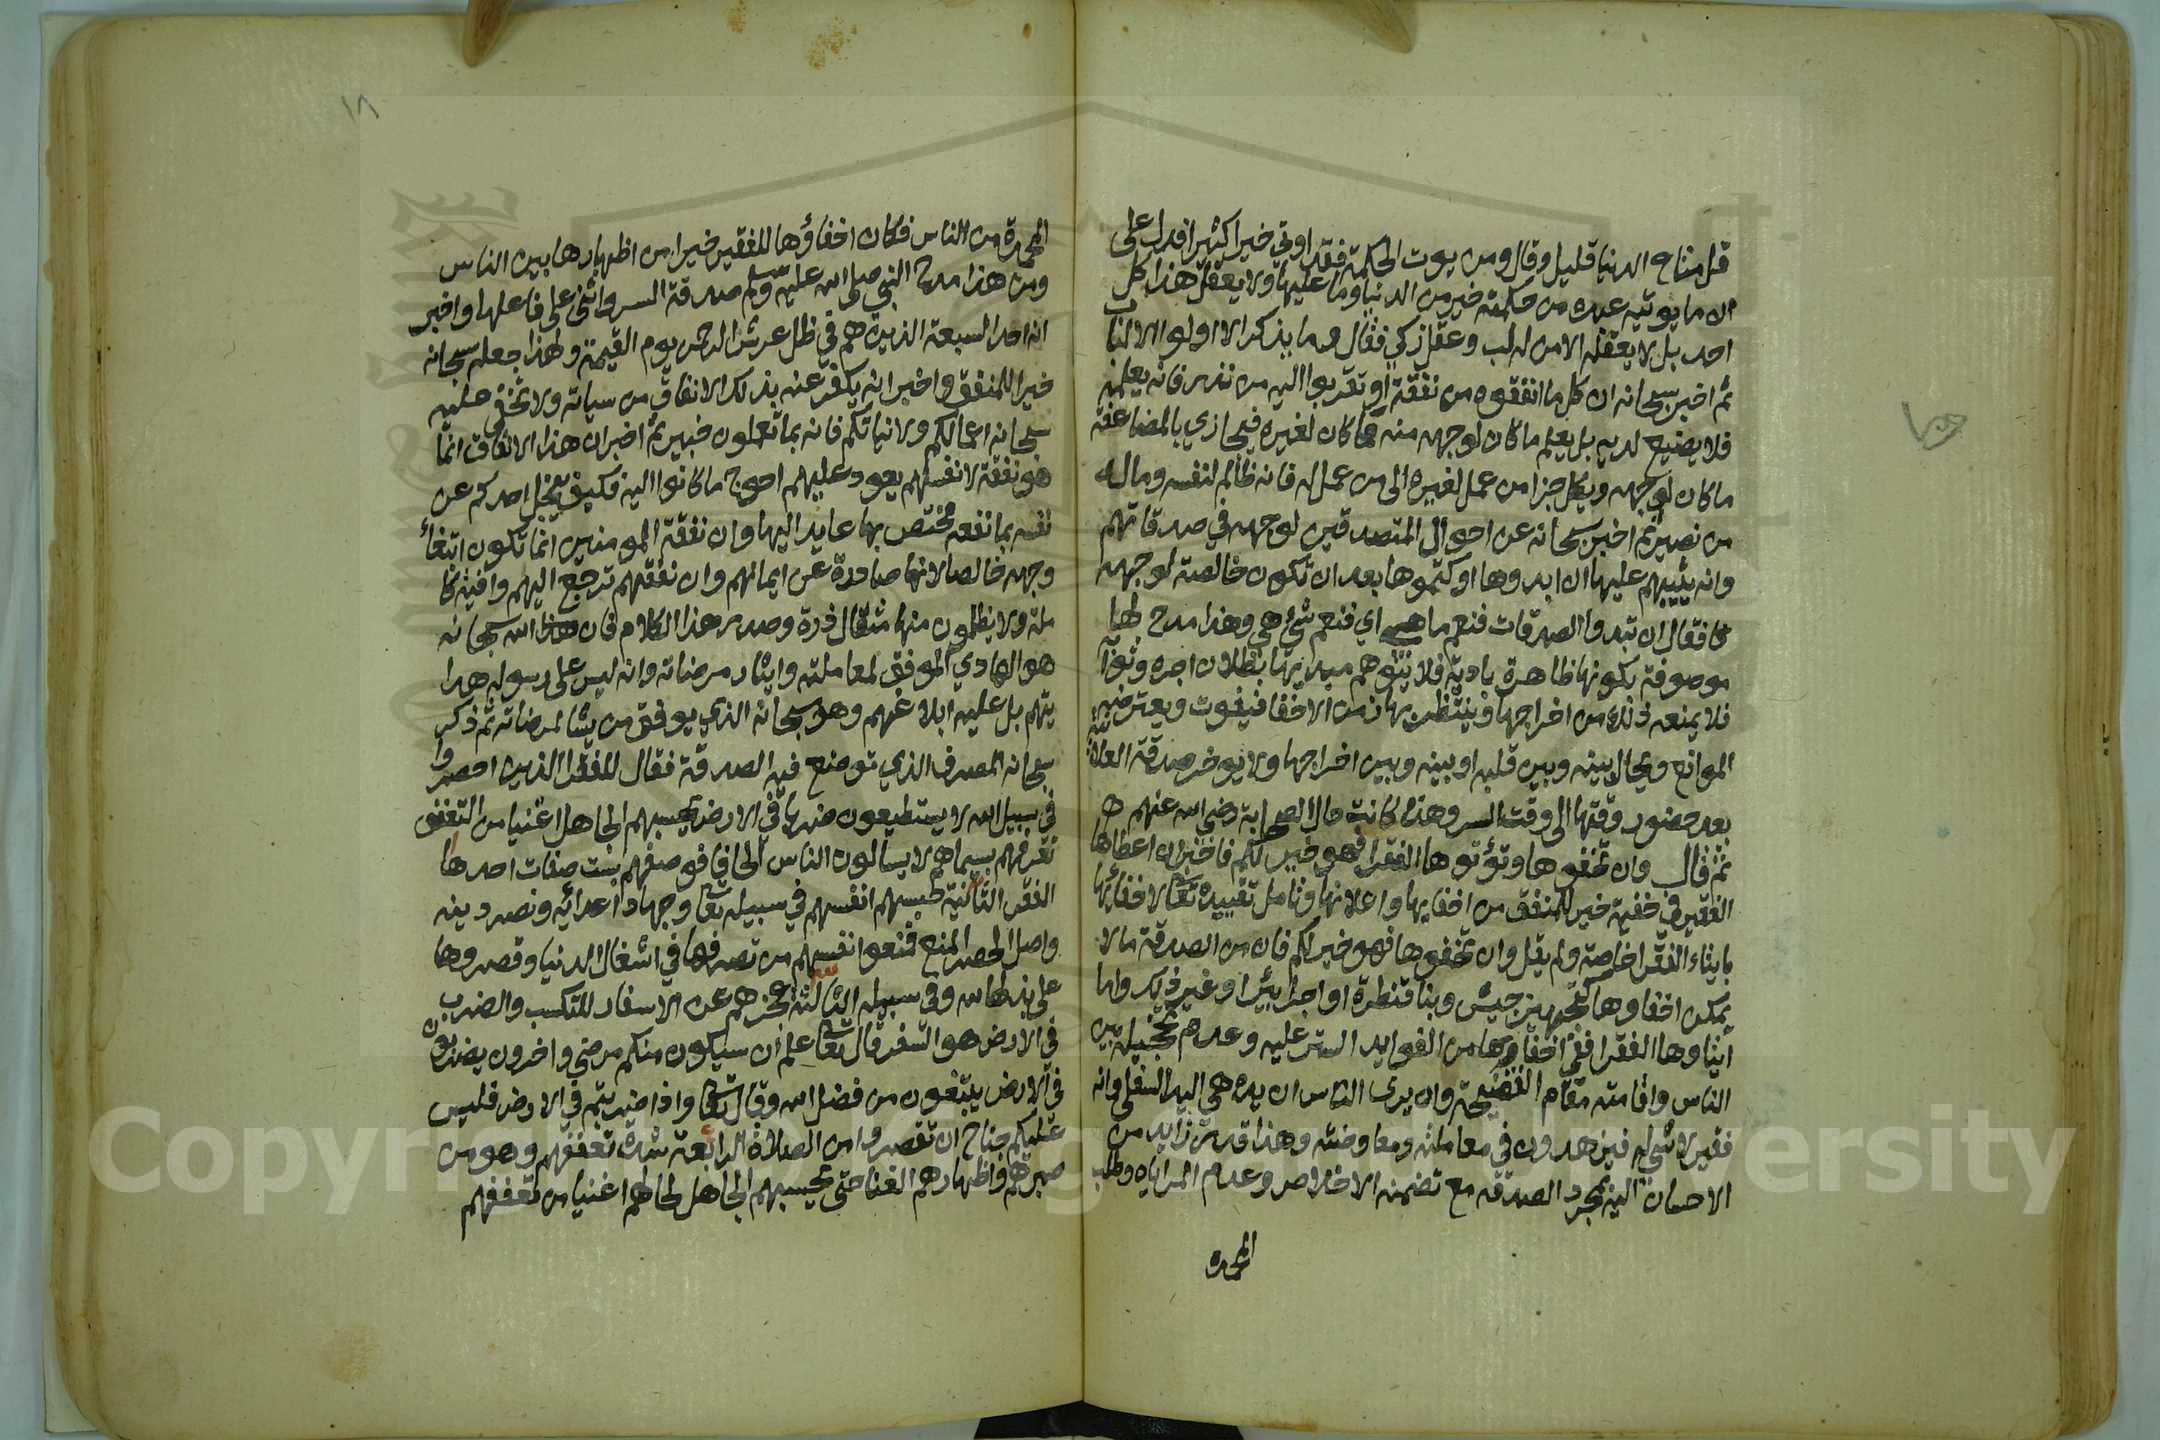 قل متاع الدنيا قليل وقال ومن يوت الحكمة فقد اوتي خيرا كثيرا فدل على
ان ما يوتيه عبده من حكمته خير من الدنيا وما عليها ولا يعقل هذا كل
احد بل لا يعقله الا من له لب وعقل زكي فقال وما يذكر الا اولوا الالباب
ثم اخبر سبحانه ان كل ما انفقوه من نفقة او تقربوا اليه من نذر فانه يعلمه
فلا يضيع لديه بل يعلم ما كان لوجهه منه مما كان لغيره فيجازي بالمضاعفة
ما كان لوجهه ويكل جزا من عمل لغيره الى من عمل له فانه ظالم لنفسه وماله
من نصير ثم اخبر سبحانه عن احوال المتصدقين لوجهه في صدقاتهم
وانه يثيبهم عليها ان ابدوها او كتموها بعد ان تكون خالصة لوجهه
فقال ان تبدوا الصدقات فنعما هي اي فنعم شئ هي وهذا مدح لها
موصوفة بكونها ظاهرة بادية فلا يتوهم مبديها بطلان اجره وثوابه
فلا يمنعه ذلك من اخراجها وينتظر بها زمن الاخفا فيفوت ويعترضه
الموانع ويحال بينه وبين قلبه او بينه وبين اخراجها ولا يوخر صدقة العلانية
بعد حضور وقتها الى وقت السر وهذه كانت حال الصحابة رضي الله عنهم
ثم قال وان تخفوها وتؤتوها الفقرا فهو خير لكم فاخبر ان اعطاها
الفقير في خفية خير للمنفق من اخفايها واعلانها وتامل تقييده تعالى الاخفا
بايتاء الفقرا خاصة ولم يقل وان تخفوها فهو خير لكم فان من الصدقة مالا
يمكن اخفاوها كتجهيز جيش وبنا قنطرة او اجرا بئر او غير ذلك واما
ايتاوها الفقرا ففي اخفاوها من الفوايد الستر عليه وعدم تخجيله بين
الناس واقامته مقام الفضيحة وان يرى الناس ان يده هي اليد السفلى وانه
فقير لا شي له فيزهدون في معاملته ومعاوضته وهذا قدر زايد من
الاحسان اليه بمجرد الصدقه مع تضمنه الاخلاص وعدم المراياه وطلب
المحمدة
المحمدة من الناس فكان اخفاؤها للفقير خيرا من اظهارها بين الناس
ومن هذا مدح النبي صلى الله عليه وسلم صدقة السر واثنى على فاعلها واخبر
انه احد السبعة الذين هم في ظل عرش الرحمن يوم القيمة ولهذا جعله سبحانه
خيرا للمنفق واخبر انه يكفر عنه بذلك الانفاق من سياته ولا تخفى عليه
سبحانه اعمالكم ولا نياتكم فانه بما تعملون خبير ثم اخبر ان هذا الانفاق انما
هو نفقة لانفسهم يعود عليهم احوج ما كانوا اليه فكيف يبخل احدكم عن
نفسه بما نفعه مختص بها عايد اليها وان نفقة المومنين انما تكون ابتغاء
وجهه خالصا لانها صادرة عن ايمانهم وان نفقتهم ترجع اليهم وافية كا
ملة ولا يظلمون منها مثقال ذرة وصدر هذا الكلام فان الله سبحانه
هو الهادي الموفق لمعاملته وايثار مرضاته وانه ليس على رسوله هدا
يتهم بل عليه ابلاغهم وهو سبحانه الذي يوفق من يشا لمرضاته ثم ذكر
سبحانه المصرف الذي توضع فيه الصدقة فقال للفقرا الذين احصروا
في سبيل الله لا يستطيعون ضربا في الارض يحسبهم الجاهل اغنيا من التعفف
تعرفهم بسيماهم لا يسالون الناس الحافا فوصفهم بست صفات احدها
الفقر الثانية حبسهم انفسهم في سبيله تعالى وجهاد اعدائه ونصر دينه
واصل الحصر المنع فمنعوا انفسهم من تصرفها في اشغال الدنيا وقصروها
على بذلها لله وفي سبيله الثالثة عجزهم عن الاسفار للتكسب والضرب
في الارض هو السفر قال تعالى علم ان سيكون منكم مرضى واخرون يضربون
في الارض يبتغون من فضل الله وقال تعالى واذا ضربتم في الارض فليس
عليكم جناح ان تقصروا من الصلاة الرابعة شدة تعففهم وهو من
صبرهم واظهارهم الغنا حتى يحسبهم الجاهل لحالهم اغنيا من تعففهم
١٨
Copyright © King Saud University